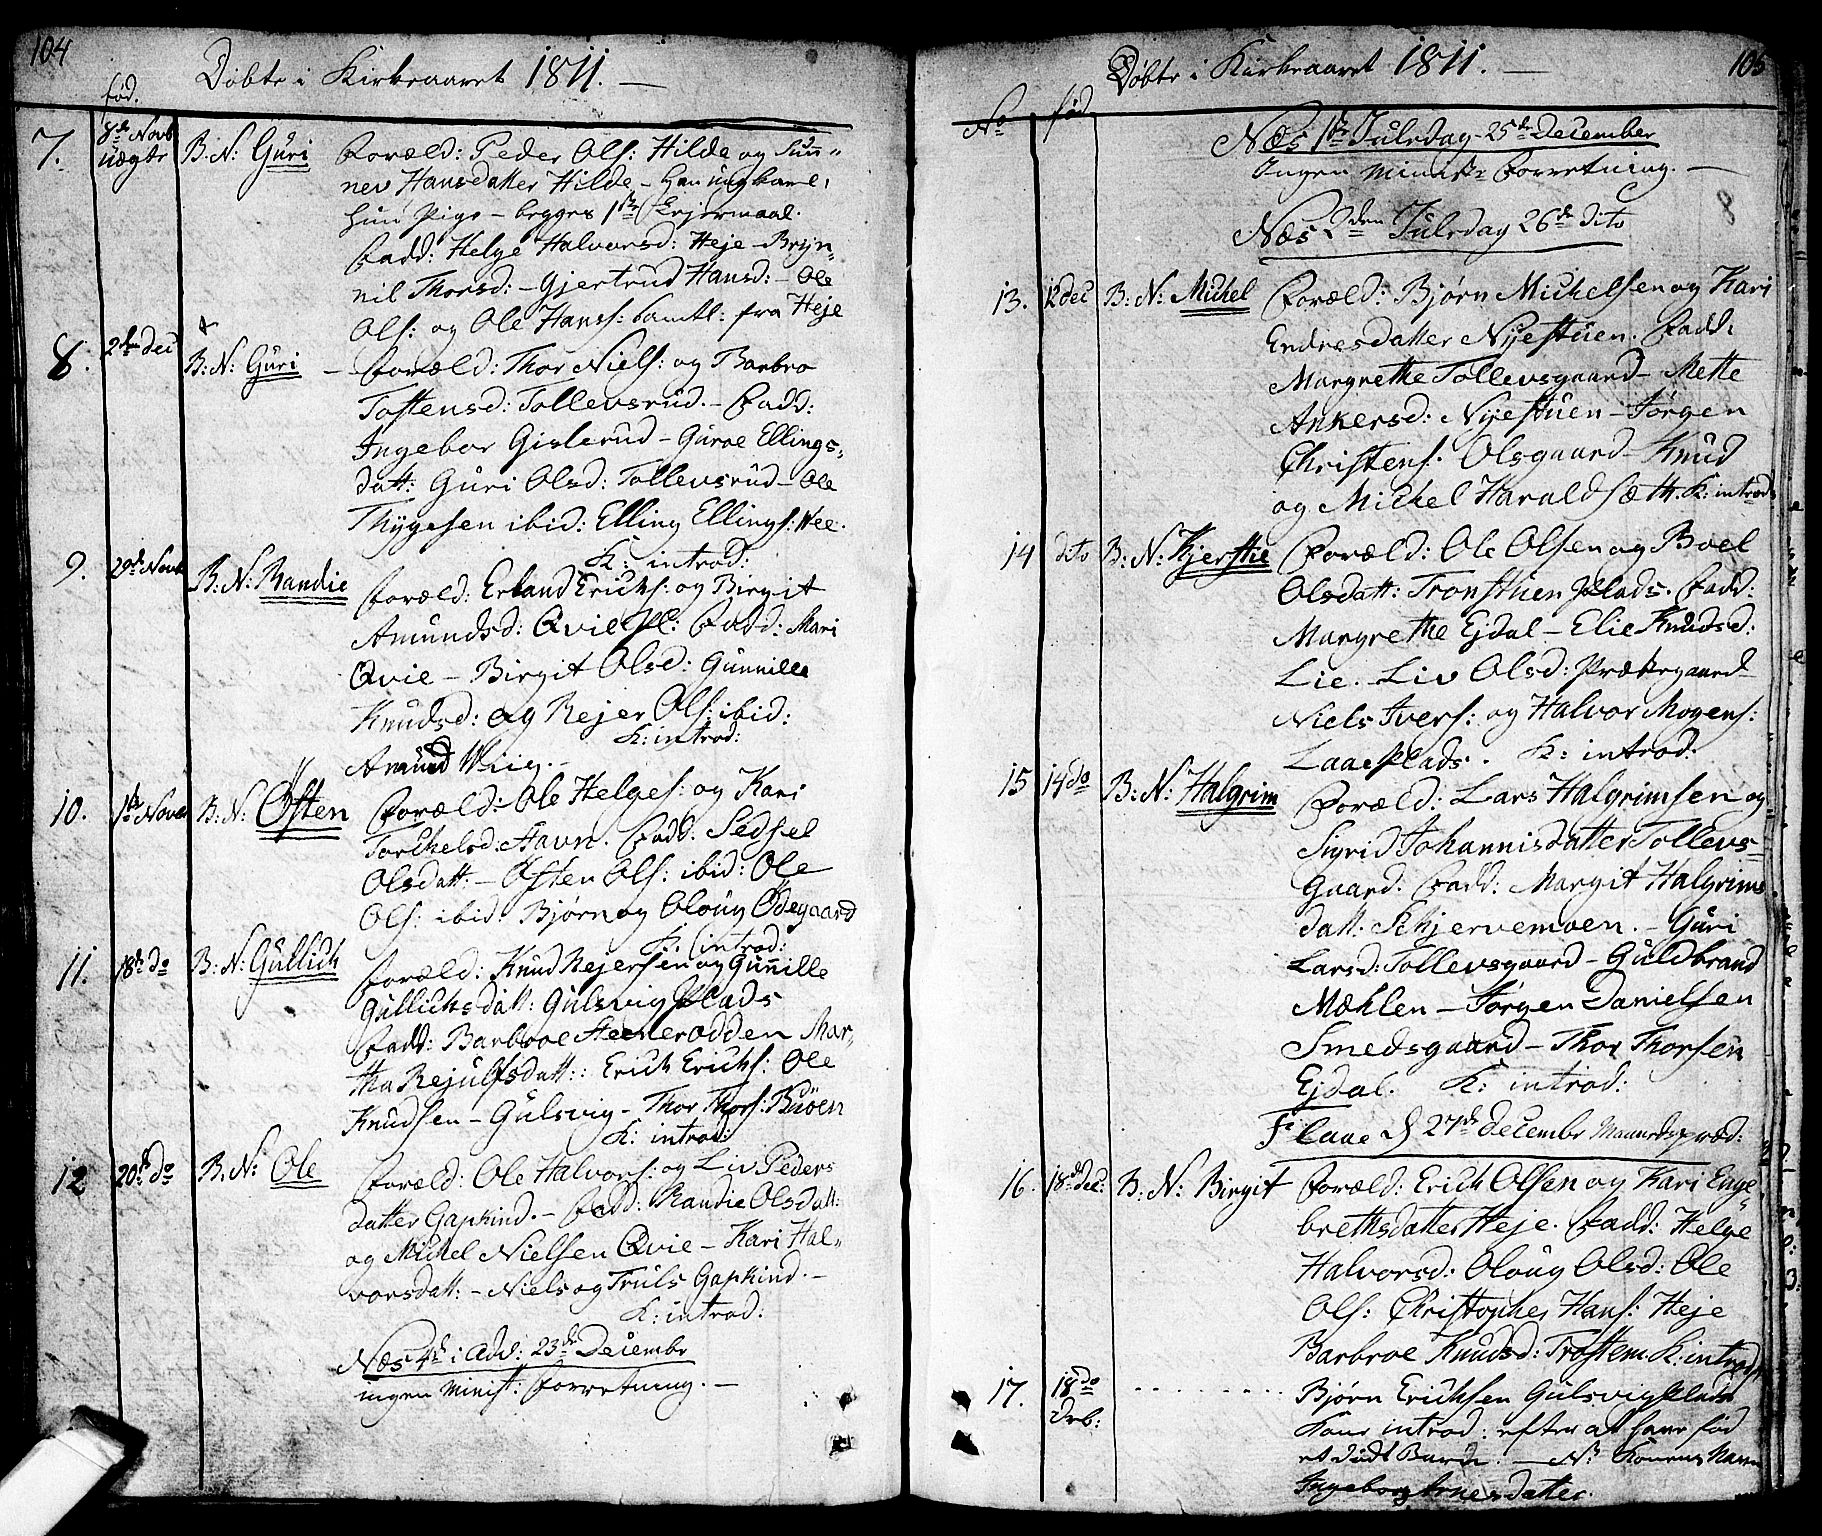 104
Døbte i Kirkeaaret 1811. —
fød.
7.
8de Novb
uægte
B. N: Guri
Foræld: Peder Ols: Hilde og Sün=
nev Hansdatter Hilde – han ungkarl,
hun Pige – begges 1ste Lejermaal.
Fadd: Helge Halvorsd: Heje – Bryn=
nil Thorsd: – Gjertrud Hansd: – Ole
Ols: og Ole Hanss: samtl: fra Heje
8.
2den dec
B. N: Guri
Foræld: Thor Niels: og Barbro
Tostensd: Tollevsrud. – Fadd:
Ingebor Gislerud – Guroe Ellings=
datt: Guri Olsd: Tollevsrud – Ole
Thygesen ibid: Elling Ellings: Nee.
K: introd:
9.
29de Novb
B: N: Randie
Foræld: Erland Ericks: og Birgit
Amundsd: Qvie Pl: Fadd: Mari
Qvie – Birgit Olsd: Gunnille
Knudsd: og Rejer Ols: ibid:
K: introd:
Amund Wiig. –
10.
1ste Novem
B: N: Østen
Foræld: Ole Helges: og Kari
Torchelsd: Havn. Fadd: Sedsel
Olsdatt: – Østen Ols: ibid: Ole
Ols: ibid: Bjørn og Oloug Ødegaard
K. introd:
11.
18de do
B: N: Gullich
Foræld: Knud Rejersen og Gunnille
Gullichsdatt: Gulsvig Plads
Fadd: Barbroe Steenerodden Mar=
tha Rejulfsdatt: Erich Erichs: Ole
Knudsen – Gulsvig – Thor Thors: Buøen
K: introd:
12
20de do
B. N: Ole
Foræld: Ole Halvors: og Liv Peders
datter Gapkind. – Fadd: Randie Olsdatt:
og Michel Nielsen Qvie – Kari Hal=
vorsdatt: – Niels og Truls Gapkind. –
K: introd:
Næs 4de i Adv: 23de Decembr
ingen Minist: Forretning. –
105
Døbte i Kirkeaaret 1811. —
No
fød
Næs 1ste Juledag 25de December
Ingen Minist: Forretning. —
8
Næs 2den Juledag 26de dito
13.
12 dec
B: N: Michel
Foræld: Bjørn Michelsen og Kari
Endresdatter Nyestuen. Fadd:
Margrethe Tollevsgaard – Mette
Ankersd: Nyestuen – Jørgen
Christens: Olsgaard – Knud
og Michel Haraldsæth. K: introd:
14
dito
B: N: Kjerstie
Foræld: Ole Olsen og Boel
Olsdatt: Tronstuen Plads. Fadd:
Margrethe Ejdal – Elie Knudsd:
Lie. Liv Olsd: Præstegaard –
Niels Ivers: og Halvor Mogens:
Laae Plads. K: introd:
15
14 do
B: N: Halgrim
Foræld: Lars Halgrimsen og
Sigrid Johannisdatter Tollevs=
Gaard. Fadd: Margit Halgrims
datt: Schjervemoen. – Guri
Larsd: Tollevsgaard – Guldbrand
Mæhlen – Jørgen Danielsen
Smedsgaard – Thor Thorsen
Ejdal. K: introd:
Flaae d 27de Decembr Maanedspræd:
16.
18de dec:
B: N: Birgit
Foræld: Erich Olsen og Kari Enge=
brethsdatter Heje. Fadd: Helge
Halvorsd: Oloug Olsd: Ole
Ols: Christopher Hans: Heje
Barbroe Knudsd: Trostem. K: introd:
17.
18 do
Bjørn Ericksen Gulsvig Plads
Kone introd: efter at have fød
et dødt Barn. – NB Konens Navn
Ingeborg Arnesdatter.